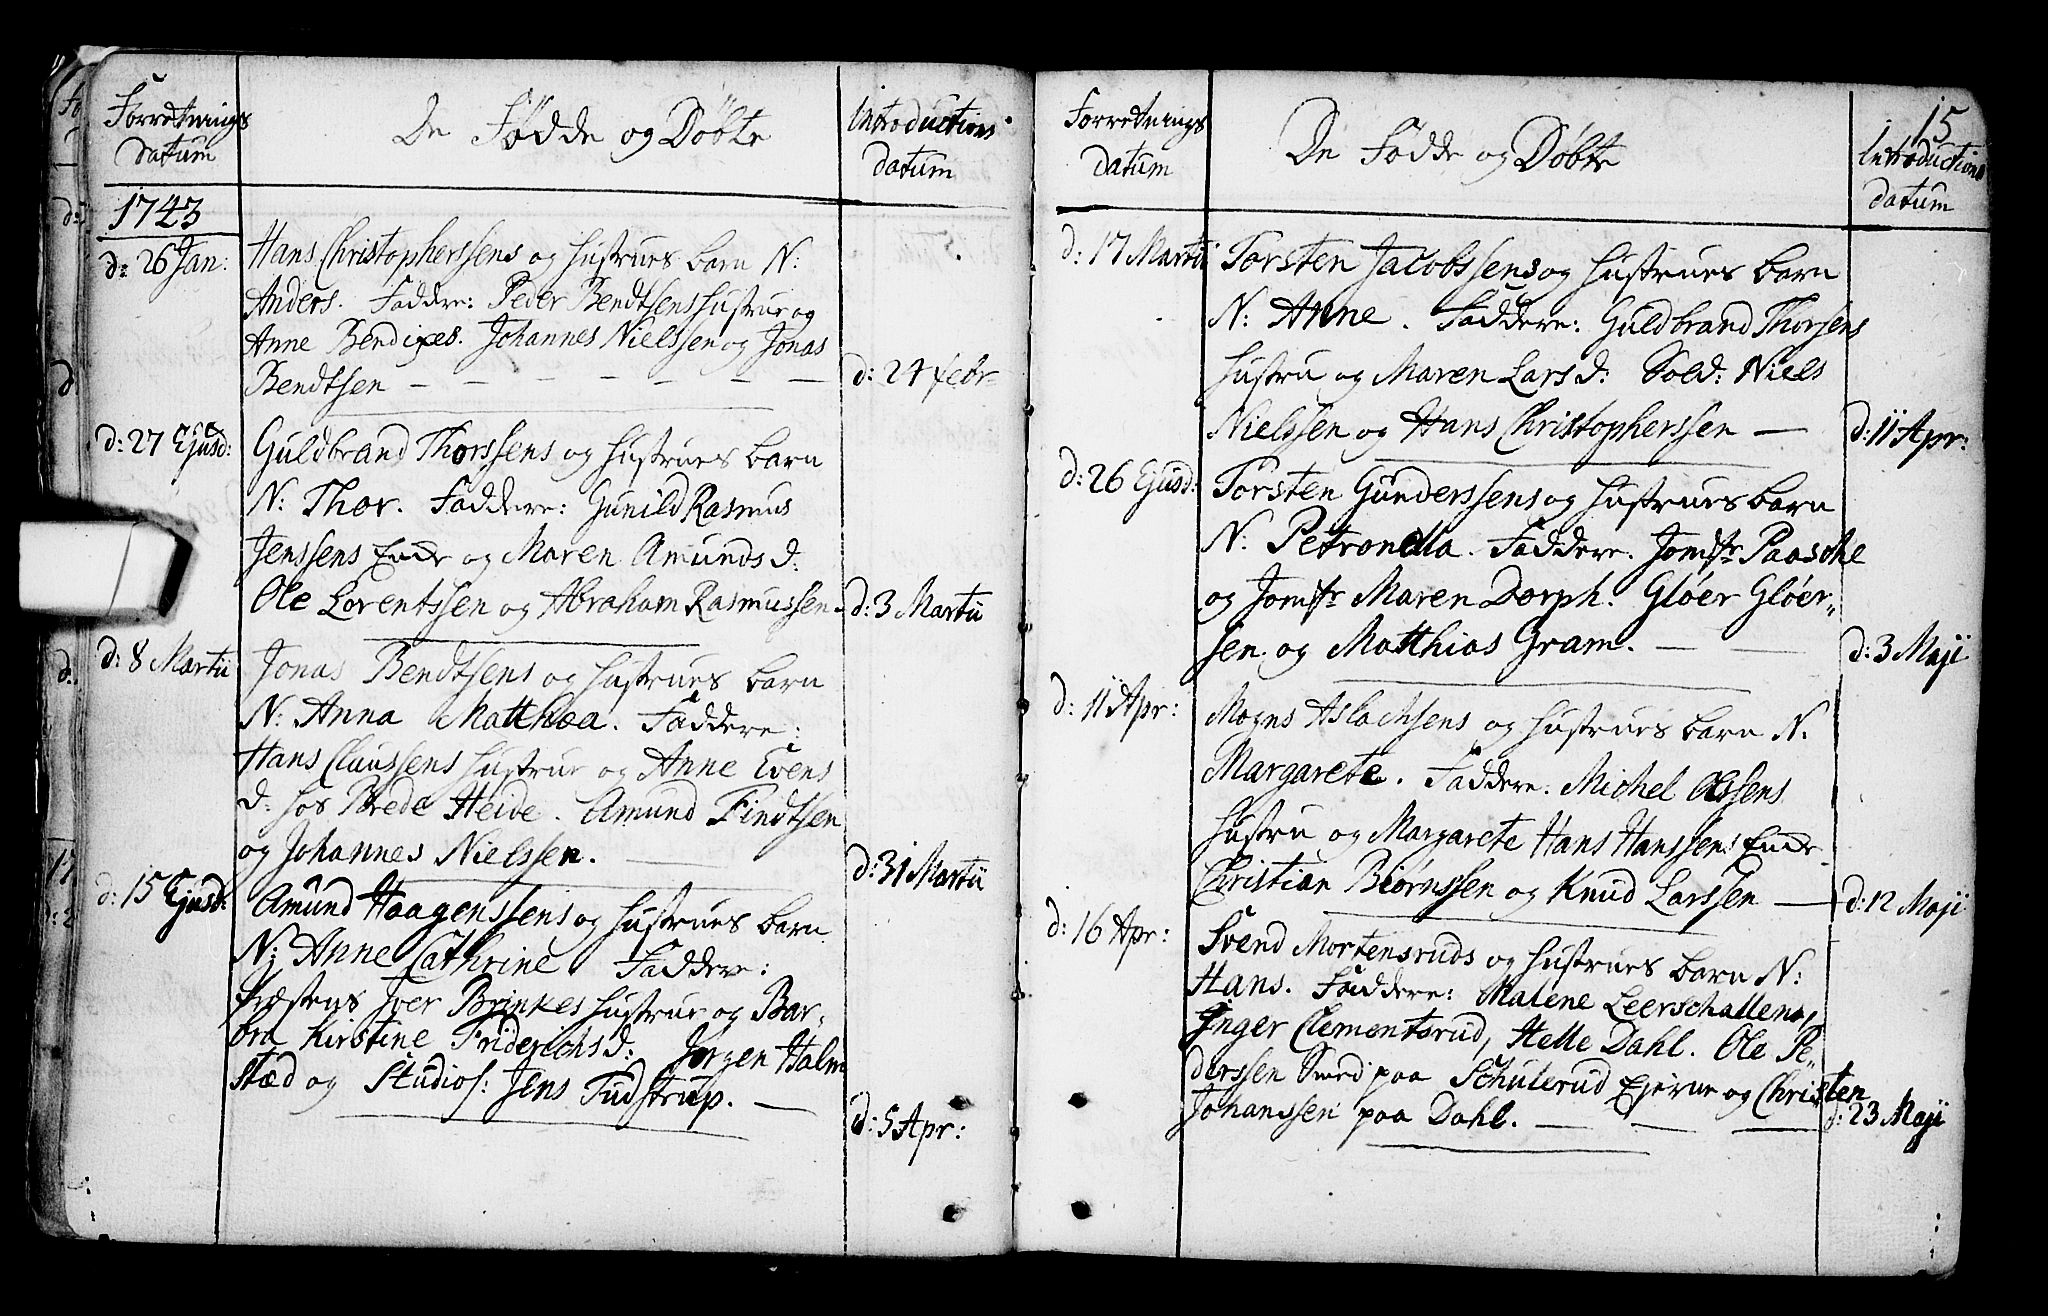 Forretnings
datum
De Fødde og Døbte
Introductions
datum
1743
d: 26 Jan:
Hans Christopherssens og Hustrues barn N:
Anders. Faddere: Peder Bendtsens Hustrue og
Anne Bendixes. Johannes Nielssen og Jonas
Bendtsen — — — — — — —
d: 24 Febr
d: 27 Ejusd:
Guldbrand Thorssens og Hustrues barn
N: Thor. Faddere: Gunild Rasmus
Jenssens Encke og Maren Amunds d:
Ole Lorentssen og Abraham Rasmussen
d: 3 Martii
d: 8 Martii
Jonas Bendtsens og Hustrues barn
N: Anna Matthea. Faddere:
Hans Claussens Hustrue og Anne Evens
d: hos Brede Heide. Amund Findtsen
og Johannes Nielssen. —
d: 31 Martii
d: 15 Ejusd:
Amund Haagenssens og Hustrues barn
N: Anne Cathrine Faddere:
Præstens Iver Brinkes Hustrue og Bar-
bra Kirstine Friderichs d: Jørgen Halm
stæd og Studios: Jens Tudstrup. —
d: 5 Apr:
15
Forretnings
datum
De Fødde og Døbte
Introductions
datum
d: 17 Martii
Torsten Jacobssens og Hustrues barn
N: Anne. Faddere: Guldbrand Thorsens
Hustru og Maren Lars d: Sold: Niels
Nielssen og Hans Christopherssen —
d: 11 Apr:
d: 26 Ejusd:
Torsten Gunderssens og Hustrues barn
N: Petronella. Faddere. Jomfr Paasche
og Jomfr Maren Dorph. Gløer Gløer-
sen og Matthias Gram. — —
d: 3 Maji
d: 11 Apr:
Mogns Aslachsens og Hustrues barn N:
Margarete. Faddere: Michel Olssens
Hustru og Margarete Hans Hanssens Encke.
Christian Biørnssen og Knud Larssen —
d: 12 Maji
d: 16 Apr:
Svend Mortensruds og Hustrues barn N:
Hans. Faddere: Malene Leerschallens,
Inger Clementsrud, Helle Dahl. Ole Pe-
derssen Smed paa Schulerud Ejerne og Christen
Johanssen paa Dahl. — — —
d: 23 Maji